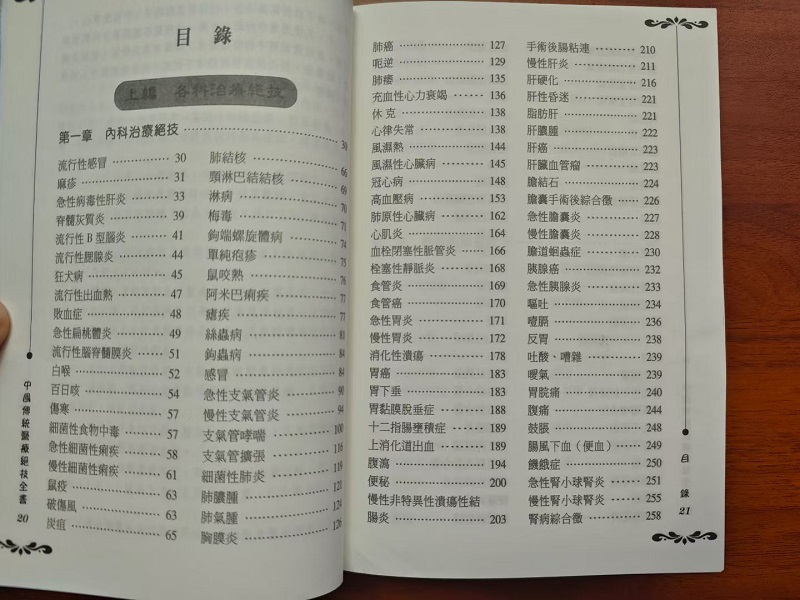 目錄
上編 各科治療絕技
第一章 內科治療絕技 30
流行性感冒 30
麻疹 31
急性病毒性肝炎 33
脊髓灰質炎 39
流行性B型腦炎 41
流行性腮腺炎 44
狂犬病 45
流行性出血熱 47
敗血症 48
急性扁桃體炎 49
流行性腦脊髓膜炎 51
白喉 52
百日咳 54
傷寒 57
細菌性食物中毒 57
急性細菌性痢疾 58
慢性細菌性痢疾 61
鼠疫 63
破傷風 63
炭疽 65
肺結核 66
頸淋巴結結核 69
淋病 70
梅毒 71
鉤端螺旋體病 74
單純疱疹 75
鼠咬熱 76
阿米巴痢疾 77
瘧疾 77
絲蟲病 81
鉤蟲病 84
感冒 84
急性支氣管炎 90
慢性支氣管炎 94
支氣管哮喘 100
支氣管擴張 116
細菌性肺炎 119
肺膿腫 121
肺氣腫 124
胸膜炎 126
中國傳統醫療絕技全書
20
肺癌 127
呃逆 129
肺痿 135
充血性心力衰竭 136
休克 138
心律失常 138
風濕熱 144
風濕性心臟病 145
冠心病 148
高血壓病 153
肺原性心臟病 162
心肌炎 164
血栓閉塞性脈管炎 166
栓塞性靜脈炎 168
食管炎 169
食管癌 170
急性胃炎 171
慢性胃炎 172
消化性潰瘍 178
胃癌 183
胃下垂 183
胃黏膜脫垂症 188
十二指腸壅積症 189
上消化道出血 189
腹瀉 194
便秘 200
慢性非特異性潰瘍性結
腸炎 203
手術後腸粘連 210
慢性肝炎 211
肝硬化 216
肝性昏迷 221
脂肪肝 221
肝膿腫 222
肝癌 223
肝臟血管瘤 223
膽結石 224
膽囊手術後綜合徵 226
急性膽囊炎 227
慢性膽囊炎 228
膽道蛔蟲症 230
胰腺癌 232
急性胰腺炎 233
嘔吐 234
噎膈 236
反胃 238
吐酸、嘈雜 239
噯氣 239
胃脘痛 240
腹痛 244
鼓脹 248
腸風下血（便血） 249
饑餓症 250
急性腎小球腎炎 251
慢性腎小球腎炎 255
腎病綜合徵 258
目錄
21